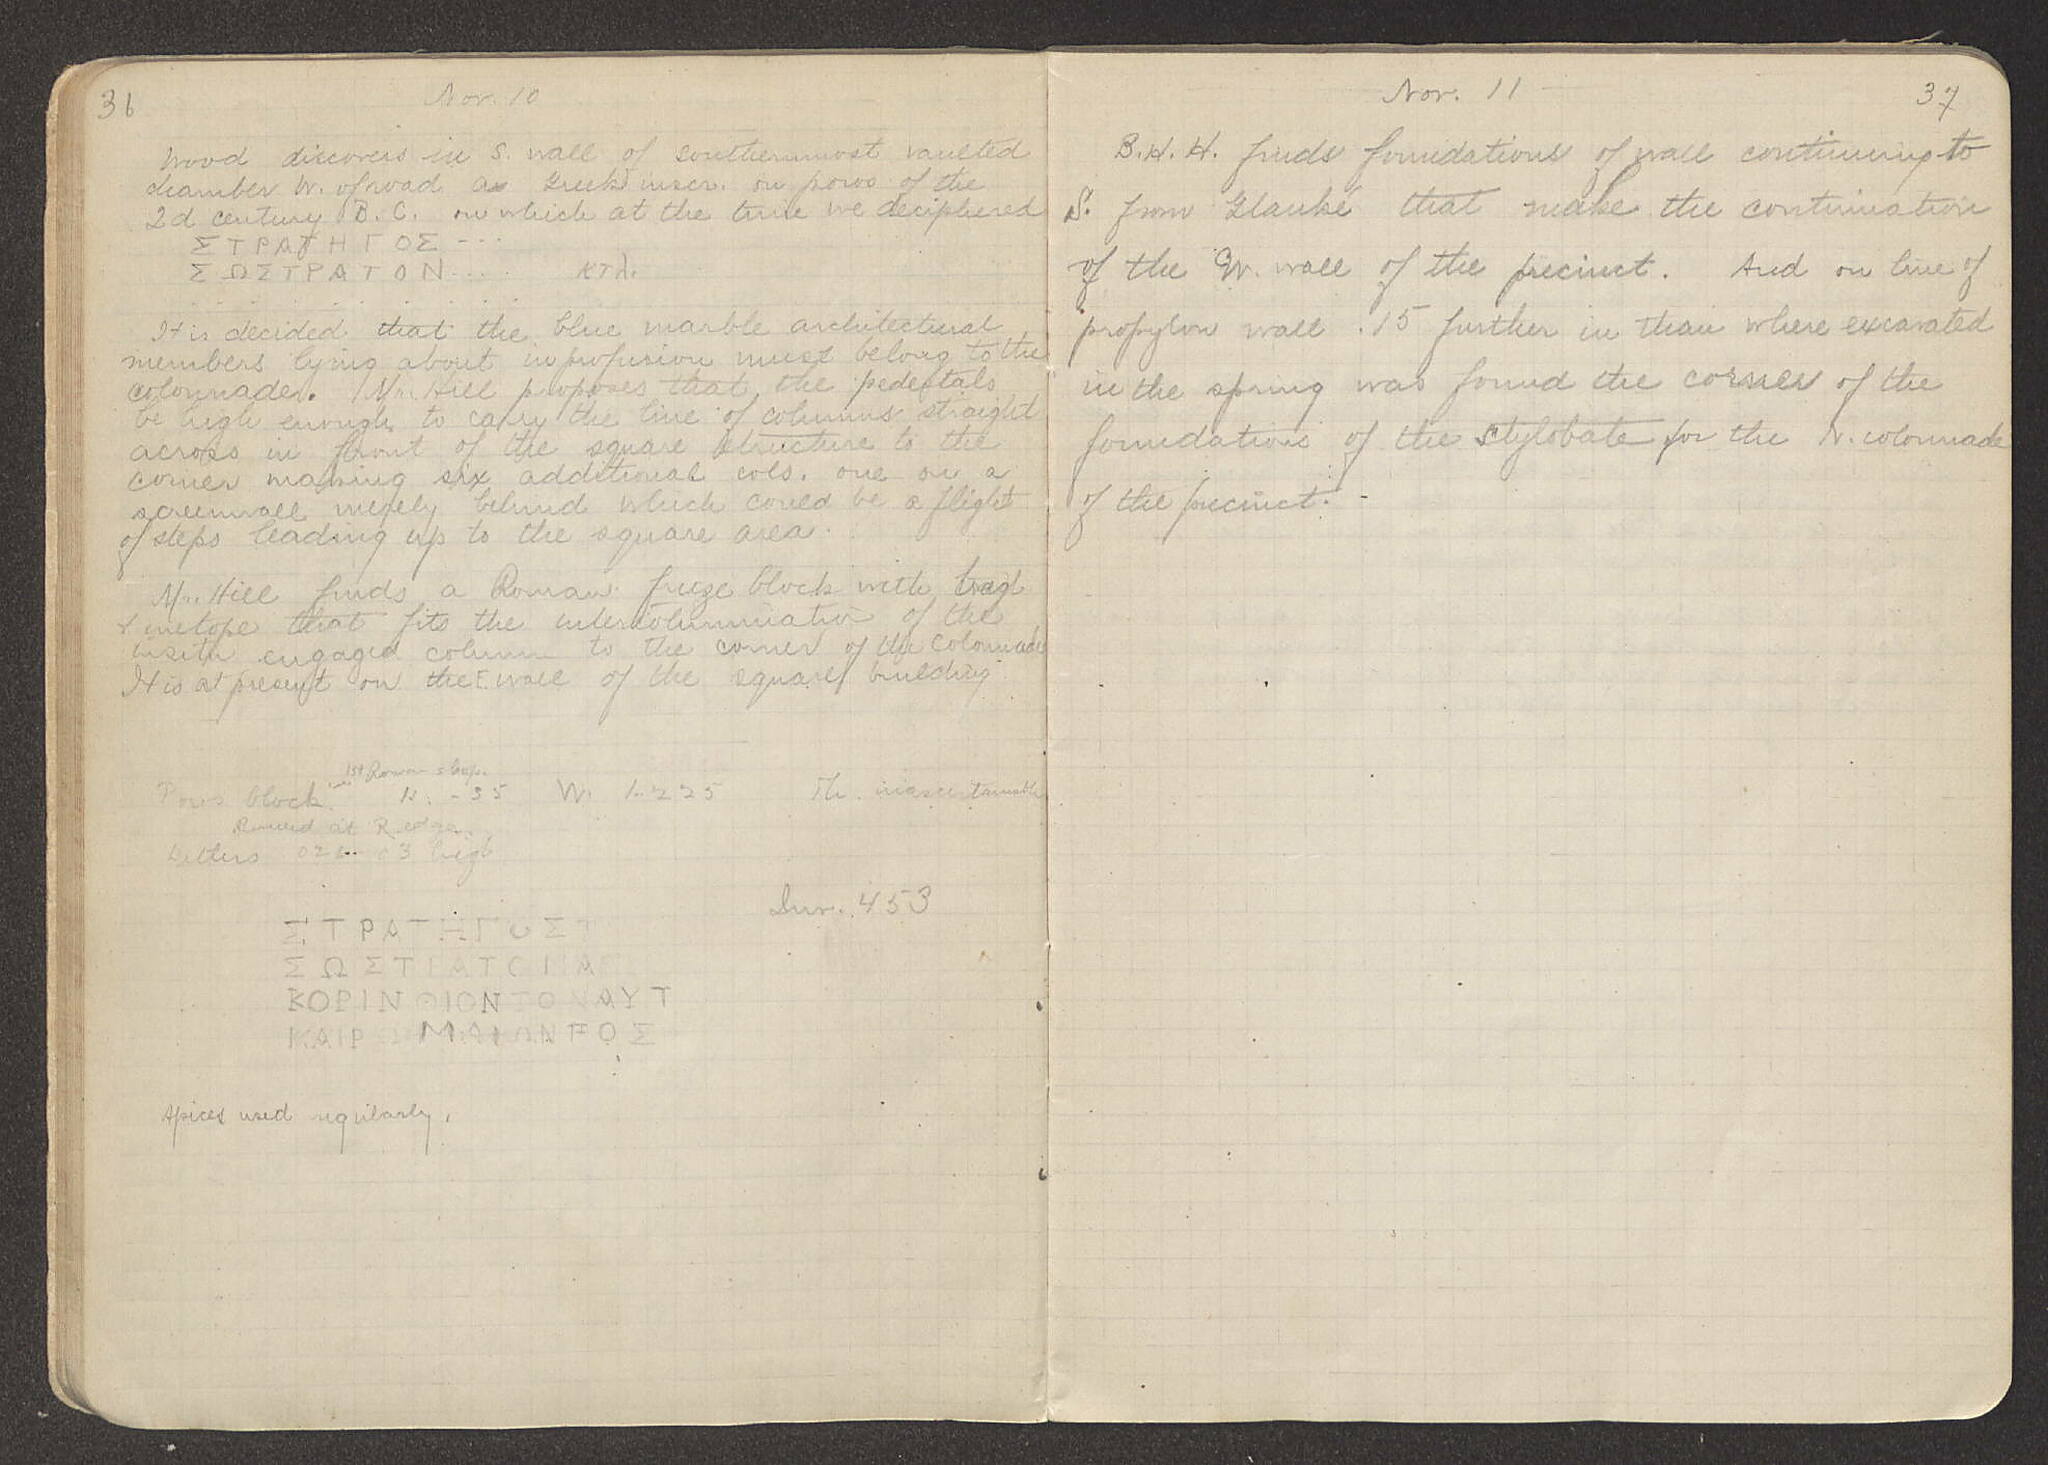 36
Nov. 10
Wood discovers in S. wall of southernmost vaulted
chamber W. of road a Greek inscr. on poros of the
2d century B.C. on which at the time we deciphered
ΣΤΡΑΤΗΓΟΣ - - -
ΣΩΣΤΡΑΤΟΝ .... κτλ.
It is decided that the blue marble architectural
members lying about in profusion must belong to the
colonnade. Mr. Hill proposes that the pedestals
be high enough to carry the line of columns straight
across in front of the square structure to the
corner making six additional cols. one on a
screenwall merely behind which could be a flight
of steps leading up to the square area.
Mr. Hill finds a Roman frieze block with trigl
+ metope that fits the intercolumniation of the
in situ engaged column to the corner of the colonnade
It is at present on the E wall of the square building
1st Roman shop.
Poros block. H. -35 W. 1.225 Th. inascertainable
Broken at R edge.
Letters 02 .. 03 high
Inv. 453
ΣΤΡΑΤΗΓΟΣΤ
ΣΩΣΤΡΑΤΟΝΑ
ΚΟΡΙΝΘΙΟΝΤΟΝΑΥΤ
ΚΑΙΡΩΜΑΙΩΝΠΟΣ
Apices used regularly.
Nov. 11
37
B.H.H. finds foundations of wall continuing to
S. from Glauke that make the continuation
of the W. wall of the precinct. And on line of
propylon wall .15 further in than where excavated
in the spring was found the corner of the
foundations of the stylobate for the N. colonnade
of the precinct. -